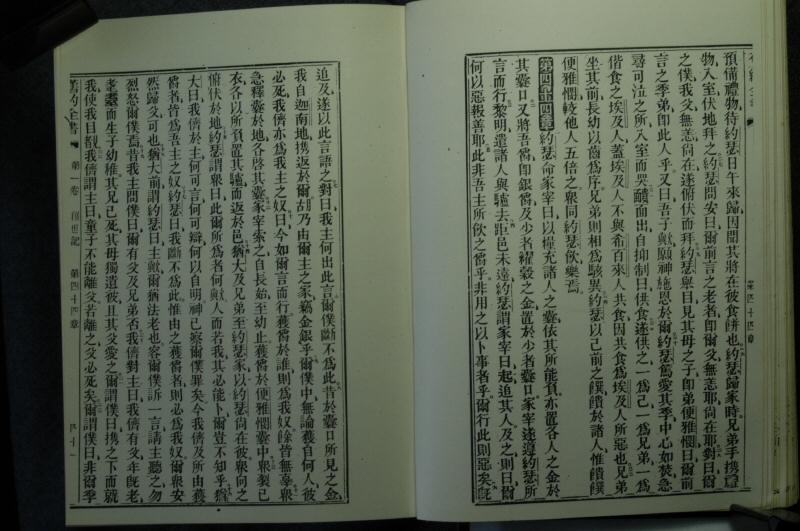 預備禮物待約瑟日午來歸因聞其將在彼食餅也約瑟歸家時兄弟手携
物入室伏地拜之約瑟問安曰爾前言之老者卽爾父無恙耶尚在耶對曰爾
之僕我父無恙尚在遂俯伏而拜約瑟舉目見其母之子卽弟便雅憫曰爾前
言之季弟卽此人乎又曰吾子歟願神施恩於爾約瑟篤愛其季中心如焚急
尋可泣之所入室而哭靧面出自抑制曰供食遂供之一爲己一爲兄弟一爲
偕食之埃及人蓋埃及人不與希百來人共食因共食爲埃及人所惡也兄弟
坐其前長幼以齒爲序兄弟則相爲駭異約瑟以己前之饌饋於諸人惟饋
便雅憫較他人五倍之衆同約瑟飲樂焉
第四十四章約瑟命家宰曰以糧充諸人之囊依其所能負亦置各人之金於
其囊口又將吾觴卽銀觴及少者糴穀之金置於少者囊口家宰遂遵約瑟所
言而行黎明遣諸人與驢去距邑未遠約瑟謂家宰曰起追其人及之則曰爾
何以惡報善耶此非吾主所飲之觴乎非用之以卜事者乎爾行此則惡矣旣
第四十四章
追及遂以此言語之對曰我主何出此言爾僕斷不爲此昔於囊口所見之金
我自迦南地携返於爾胡乃由爾主之家竊金銀乎爾僕中無論獲自何人彼
必死我儕亦爲我主之奴曰今如爾言而行獲觴於誰則爲我奴餘皆無辜衆
急釋囊於地各啓其囊家宰索之自長始至幼止獲觴於便雅憫囊中衆裂己
衣各以所負置其驢而返於邑猶大及兄弟至約瑟家以約瑟尚在彼衆向之
俯伏於地約瑟謂衆曰此爾所爲者何歟人而若我其必能卜爾豈不知乎猶
大曰我儕於主何可言何可辯何以自明神已察爾僕罪矣今我儕及所由獲
觴者皆爲吾主之奴約瑟曰我斷不爲此惟由之獲觴者則必爲我奴爾衆安
然歸父可也猶大前謂約瑟曰主歟爾猶法老也容爾僕訴一言請主聽之勿
烈怒爾僕焉昔我主問僕曰爾有父及兄弟否我儕對主曰我儕有父年旣老
耄而生子幼稚其兄已死其母獨遺彼且其父愛之爾謂僕曰携之下而就
我使我目覩我儕謂主曰童子不能離父若離之父必死矣爾謂僕曰非爾季
舊約全書 第一卷 創世記 第四十四章